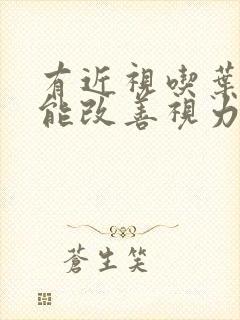 有近視喫葉
能改善視力
蒼生笑